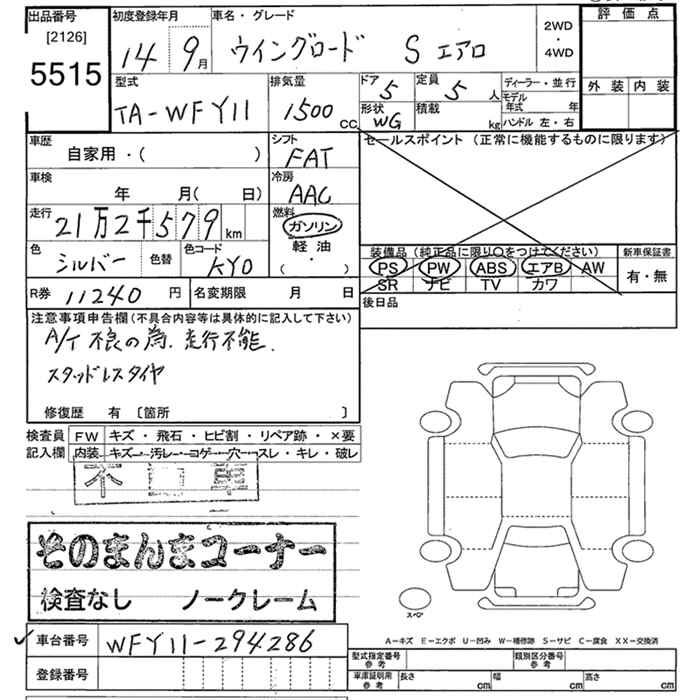 出品番号 [2126] 5515
初度登録年月 14 9月
車名・グレード ウイングロード S エアロ
2WD・4WD
評価点
外装 内装
型式 TA-WFY11
排気量 1500 CC
ドア 5 定員 5 人
形状 WG 積載 kg
ディーラー・並行
モデル年式 年
ハンドル 左・右
車歴 自家用・( )
シフト FAT
セールスポイント (正常に機能するものに限ります)
車検 年 月( 日)
冷房 AAC
走行 21万2千579 km
燃料 ガソリン 軽油 ( ・ )
色 シルバー 色替 色コード KY0
装備品 (純正品に限り○をつけてください)
PS PW ABS エアB AW
SR ナビ TV カワ
新車保証書 有・無
R券 11240 円 名変期限 月 日
後日品
注意事項申告欄 (不具合内容等は具体的に記入して下さい)
A/T 不良の為、走行不能
スタッドレスタイヤ
修復歴 有 〔箇所 〕
検査員 FW キズ・飛石・ヒビ割・リペア跡・×要
記入欄 内装 キズ・汚レ・コゲ・穴・スレ・キレ・破レ
そのまんまコーナー
検査なし ノークレーム
スペア
A-キズ E-エクボ U-凹み W-補修跡 S-サビ C-腐食 XX-交換済
車台番号 WFY11-294286
登録番号
型式指定番号 参考 類別区分番号 参考
車庫証明用 参考 長さ cm 幅 cm 高さ cm